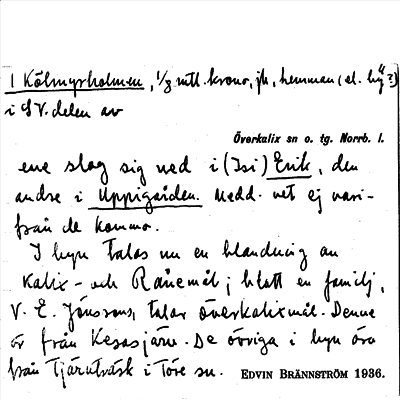 1 Kölmyrholmen, 1/8 mtl. krono, jb, hemman (el. by?)
i SV. delen av
Överkalix sn o. tg. Norrb. l.
ene slog sig ned i (Isi) Erik, den
andre i Uppigården. Medd. vet ej vari-
från de kommo.
I byn talas nu en blandning av
Kalix- och Rånemål; blott en familj,
V. E. Jönssons, talar överkalixmål. Denne
är från Kesasjärv. De övriga i byn äro
från Tjärnträsk i Töre sn. EDVIN BRÄNNSTRÖM 1936.